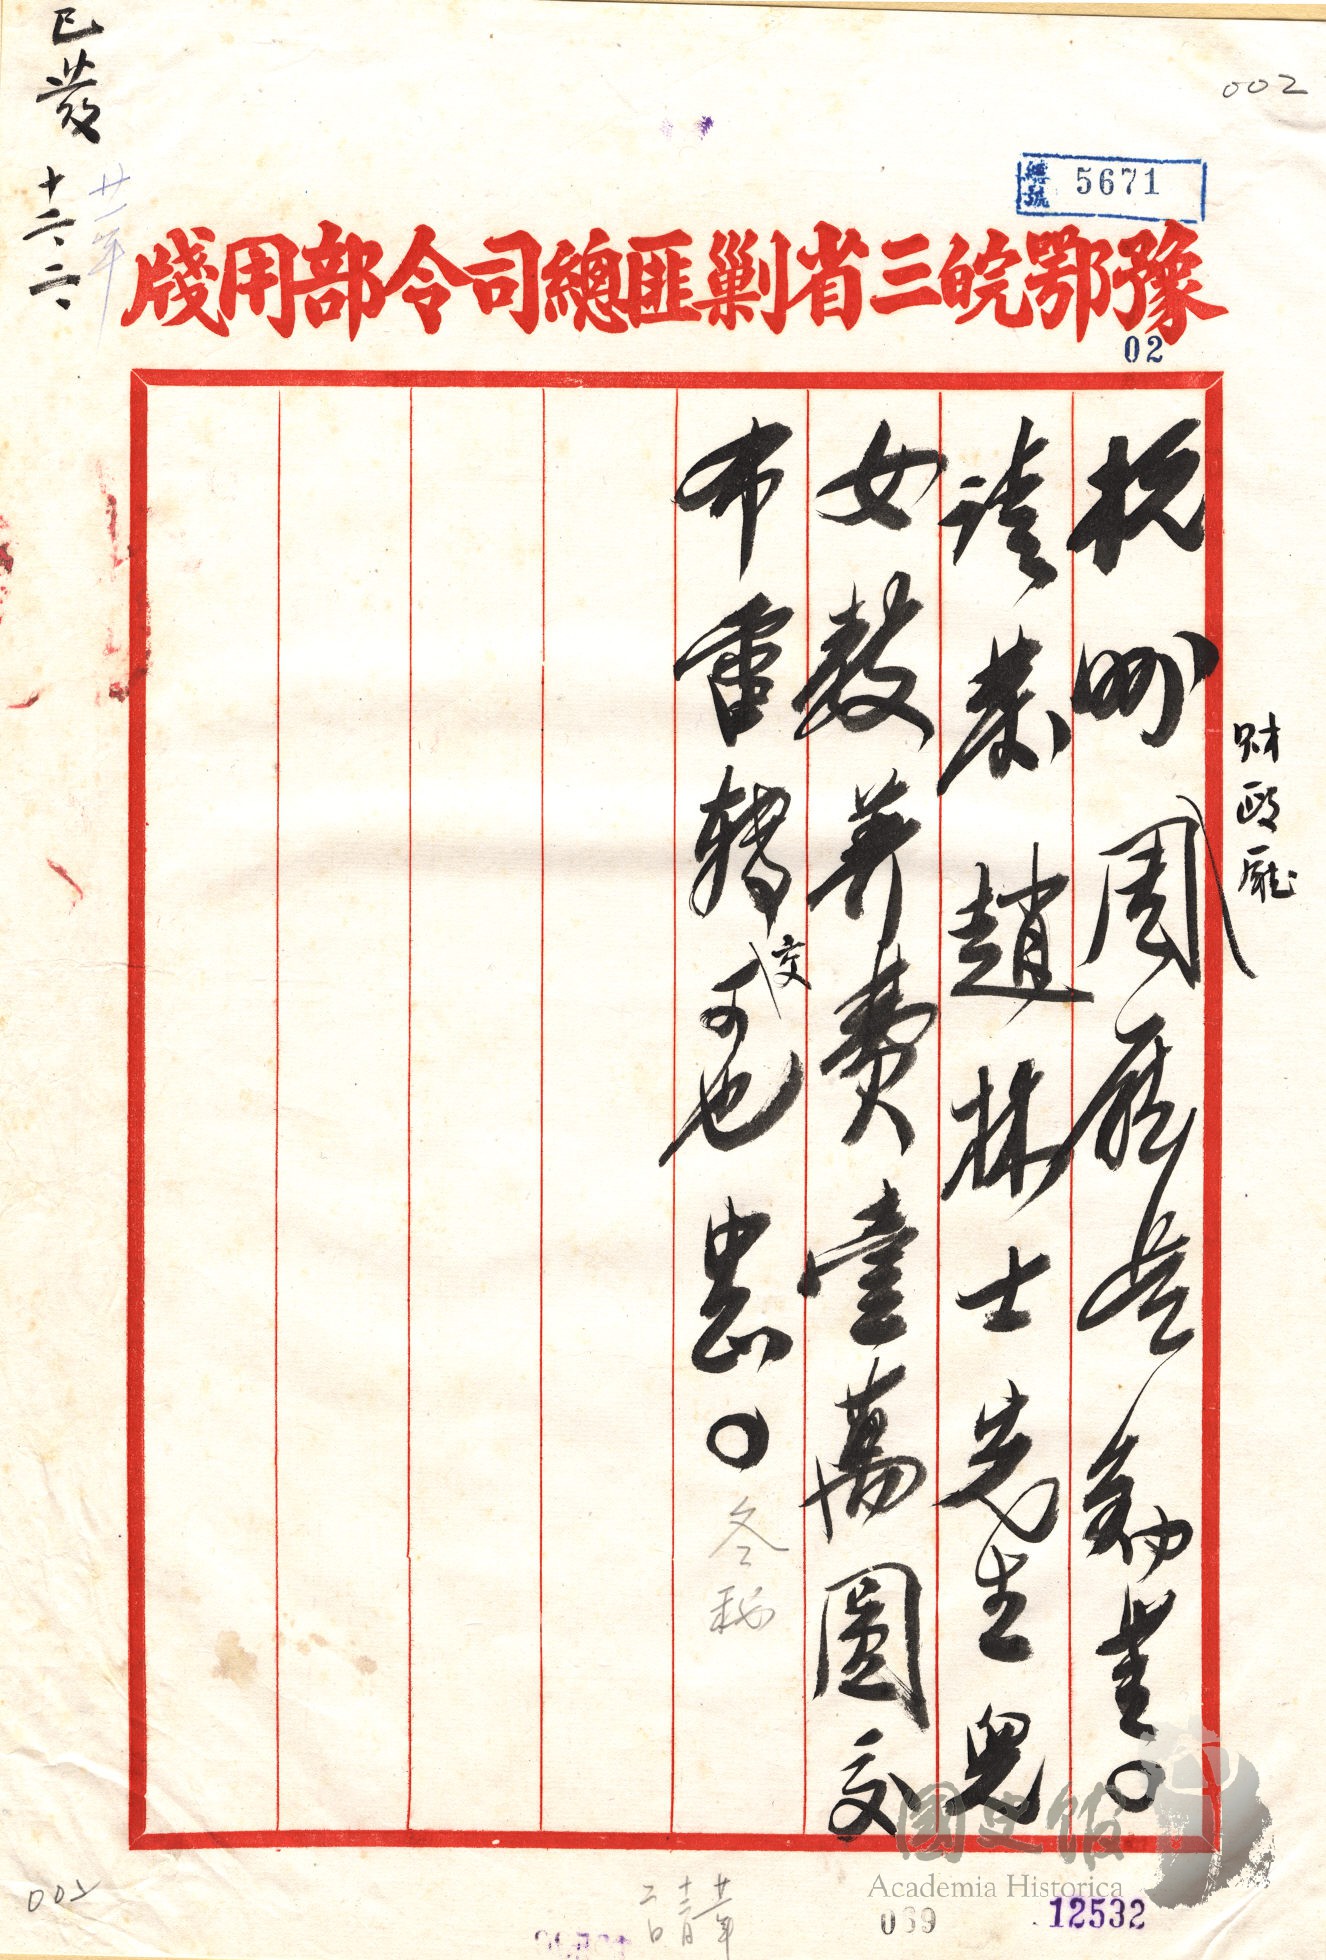 002
總號 5671
已發 十二、二、
廿一年
豫鄂皖三省剿匪總司令部用牋
02
財政廳
杭州周廳長勛鑒。
請策趙林士先生兒
女教養費壹萬圓交
布雷轉交可也 忠。
冬秘
國史館
Academia Historica
廿一年
十二月
二日
002
039
12532